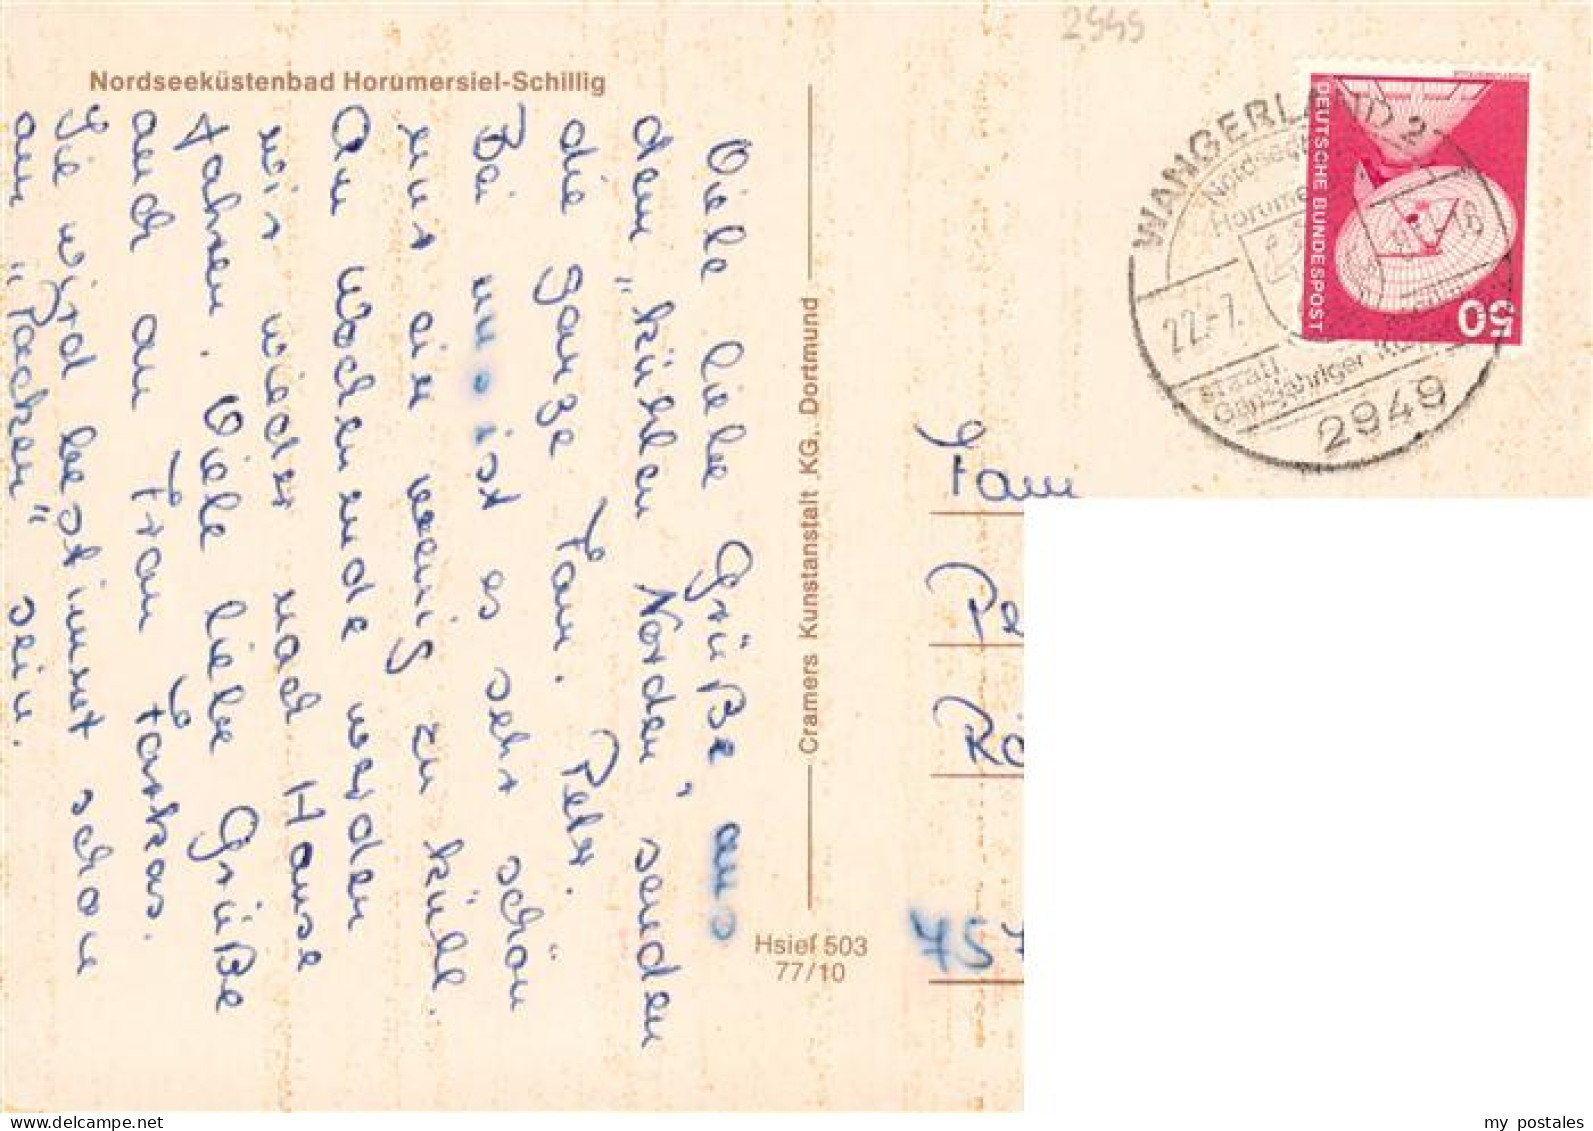 2949
Nordseeküstenbad Horumersiel-Schillig
Viele liebe Grüße aus
dem „kühlen Norden", senden
die ganze Fam. Peter.
Bei uns ist es sehr schön
nur ein wenig zu kühl.
Am Wochenende werden
wir wieder nach Hause
fahren. Viele liebe Grüße
auch an Frau Farkas.
Sie wird bestimmt schon
am „Packen" sein.
Cramers Kunstanstalt KG, Dortmund
Hsiel 503
77/10
WANGERLAND 2
Nordsee
Horume
22.-7.
-18
staatl
Ganzjähriger Kur
2949
DEUTSCHE BUNDESPOST
50
Fam
Pe
Rö
75
my postales